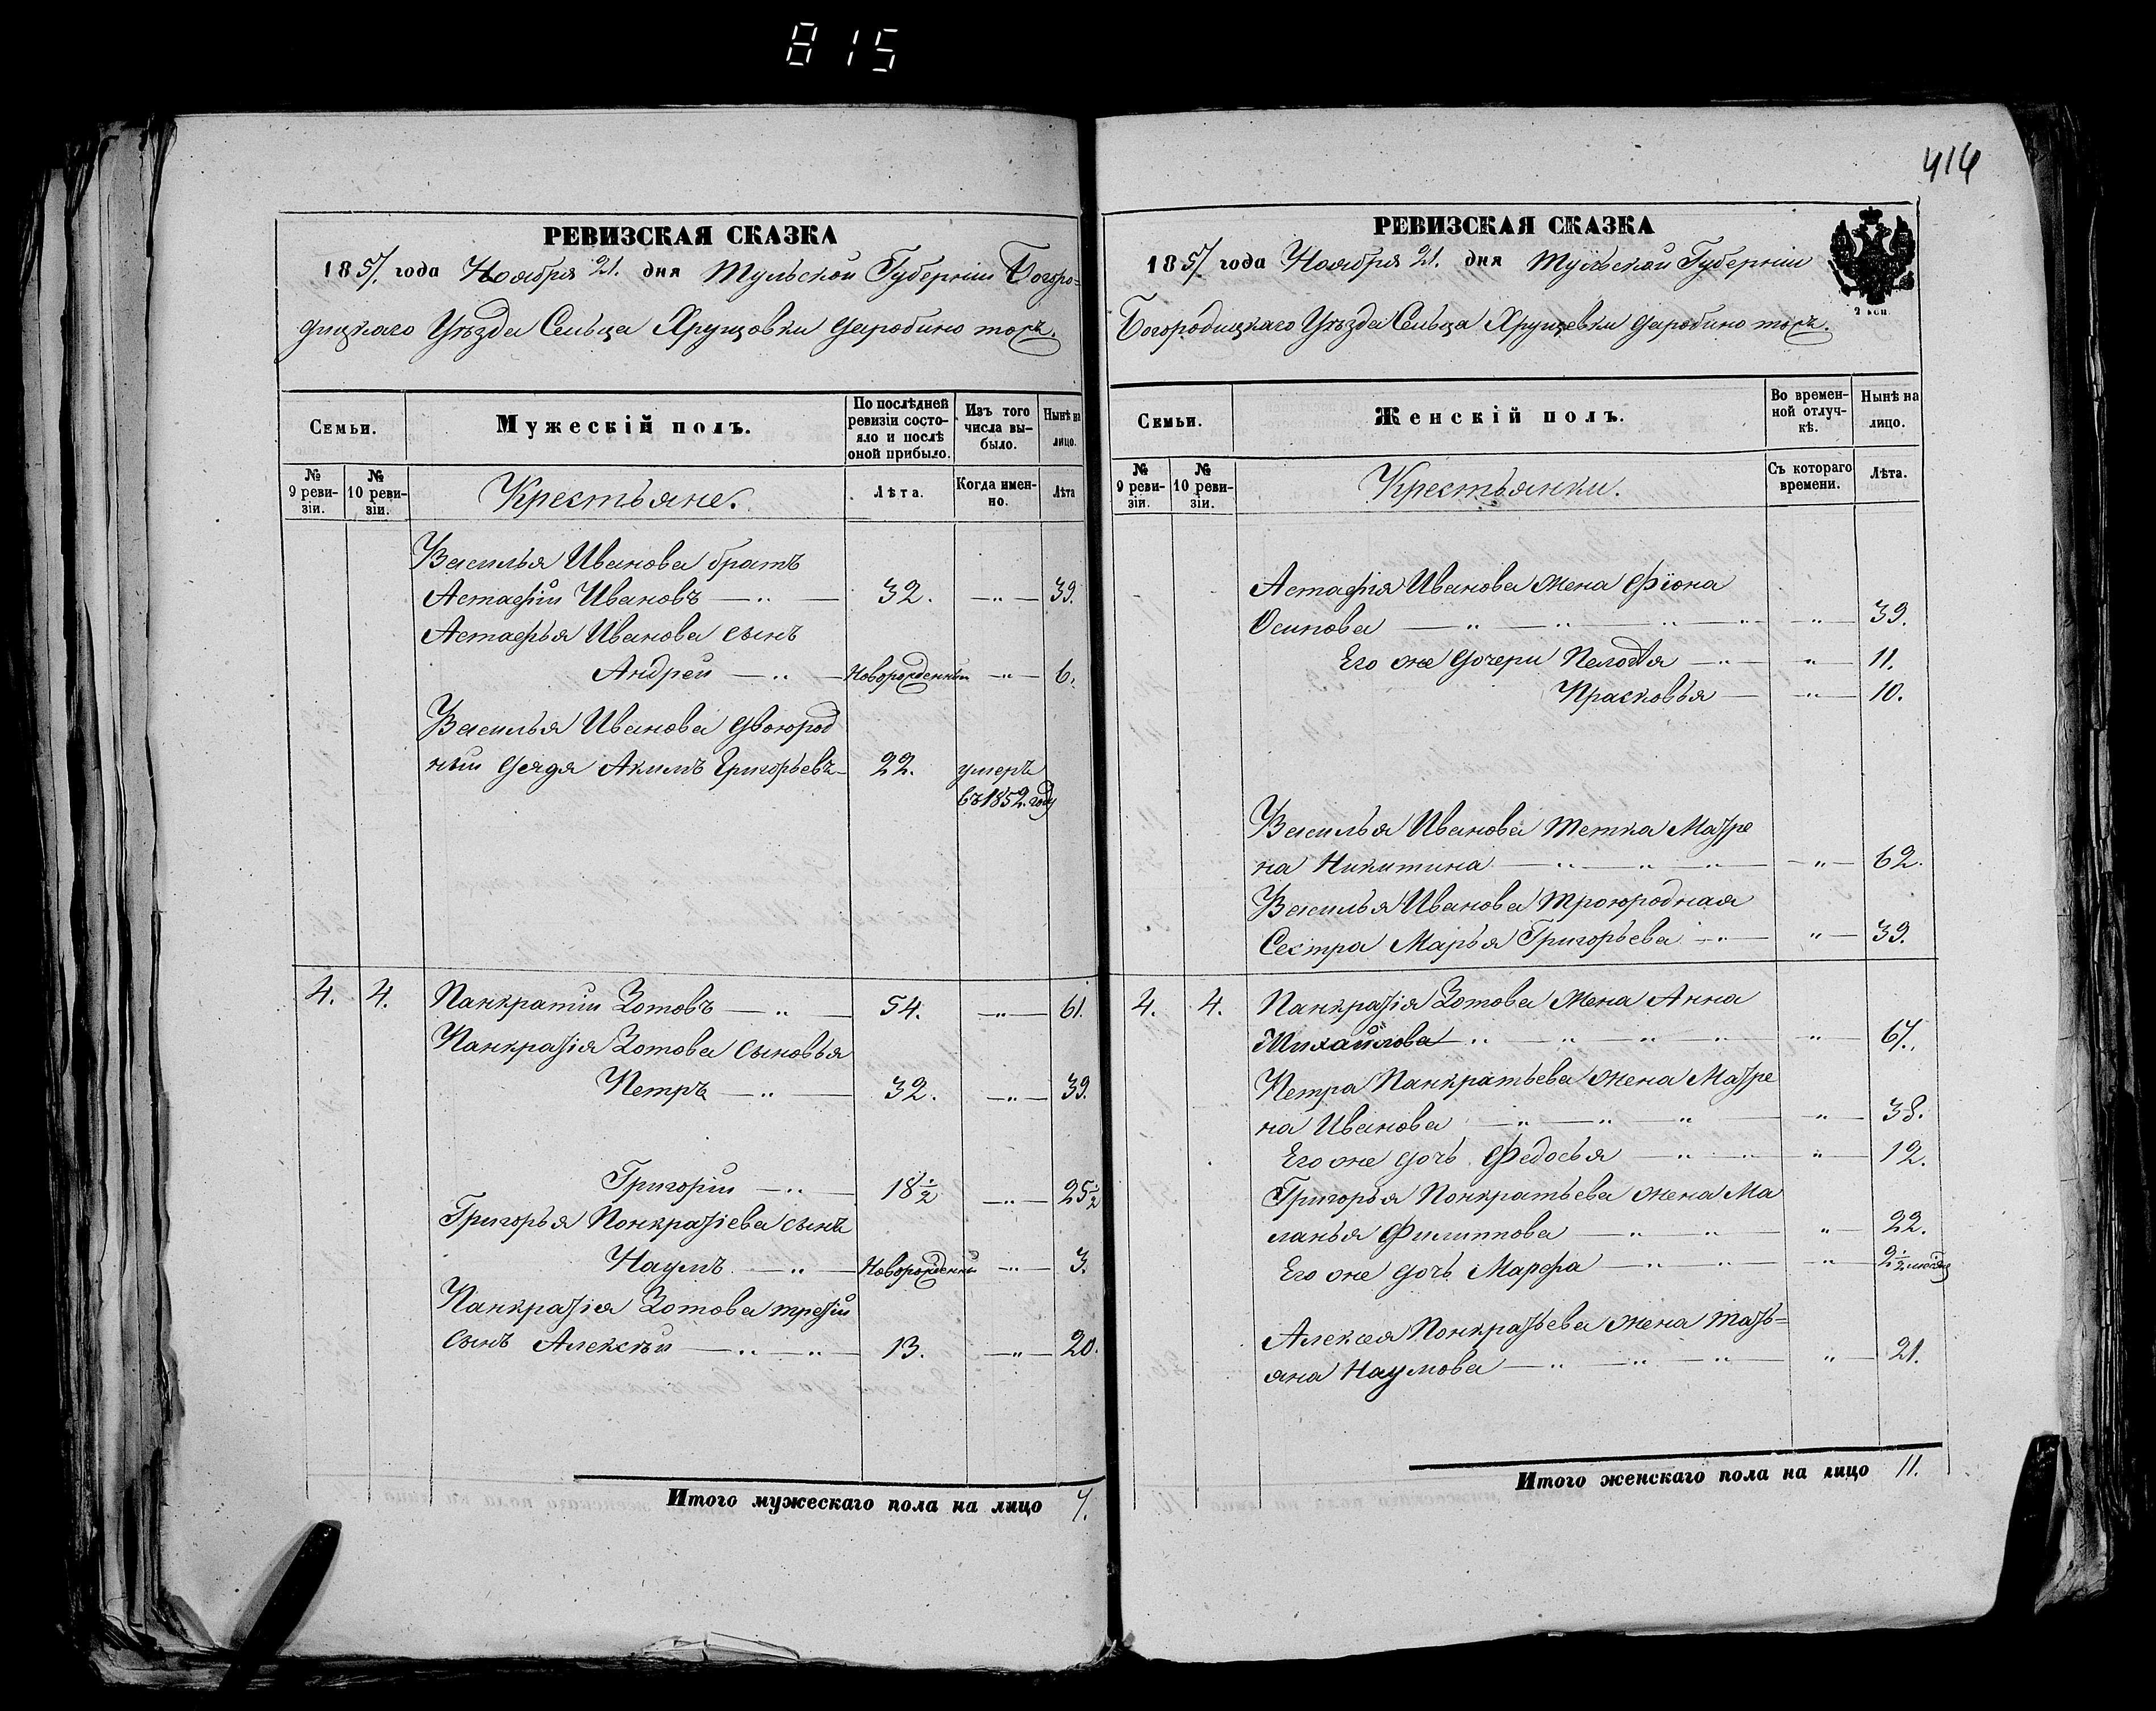 815
414
РЕВИЗСКАЯ СКАЗКА
1857. года Ноября 21. дня Тульской Губерніи Богоро=
дицкаго Уѣзда Сельца Хрущовки Даробино тожъ.
Семьи.
Мужескій полъ.
По послѣдней ревизіи состояло и послѣ оной прибыло.
Изъ того числа выбыло.
Нынѣ на лицо.
№ 9 ревизіи.
№ 10 ревизіи.
Крестьяне.
Лѣта.
Когда именно.
Лѣта
Василья Иванова братъ
Астафій Ивановъ — „ — 32. — „ — 39.
Астафья Иванова сынъ
Андрей — „ — Новорожденный — „ — 6.
Василья Иванова двоюрод
ный дядя Акимъ Григорьевъ — 22. умеръ
въ 1852. году
4. 4. Панкратій Зотовъ — „ — 54. — „ — 61.
Панкратія Зотова сыновья
Петръ — „ — 32. — „ — 39.
Григорій — „ — 18½ — „ — 25½
Григорья Понкратіева сынъ
Наумъ — „ — Новорожденный — „ — 3.
Панкратія Зотова третій
сынъ Алексѣй — „ — „ — 13. — „ — 20.
Итого мужескаго пола на лицо 7.
РЕВИЗСКАЯ СКАЗКА
1857. года Ноября 21. дня Тульской Губерніи
2 коп.
Богородицкаго Уѣзда Сельца Хрущевки Даробино тожъ.
Семьи.
Женскій полъ.
Во временной отлучкѣ.
Нынѣ на лицо.
№ 9 ревизіи.
№ 10 ревизіи.
Крестьянки.
Съ котораго времени.
Лѣта.
Астафія Иванова жена Фіона
Осипова — „ — „ — „ — „ — „ — 39.
Его же дочери Пелагѣя — „ — „ — 11.
Прасковья — „ — 10.
Василья Иванова тетка Матре
на Никитина — „ — „ — „ — „ — 62.
Василья Иванова троюродная
Сестра Марья Григорьева — „ — „ — 39.
4. 4. Панкратія Зотова жена Анна
Михайлова — „ — „ — „ — „ — „ — 67.
Петра Панкратьева жена Матре
на Иванова — „ — „ — „ — „ — 38.
Его же дочь Федосья — „ — „ — „ — 12.
Григорья Понкратьева жена Ма
ланья Филиппова — „ — „ — „ — 22.
Его же дочь Марфа — „ — „ — „ — 2½ месяца
Алексея Понкратьева жена Тать=
яна Наумова — „ — „ — „ — „ — 21.
Итого женскаго пола на лицо 11.